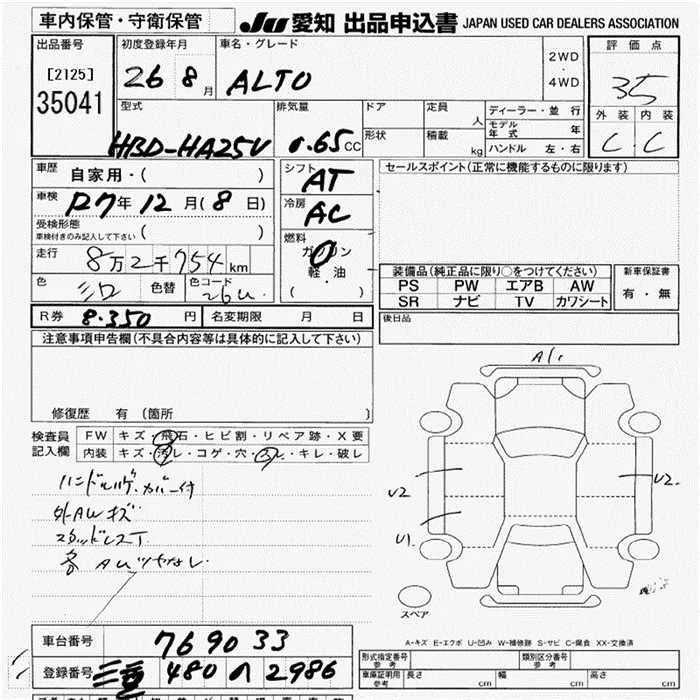 車内保管・守衛保管
JU 愛知 出品申込書 JAPAN USED CAR DEALERS ASSOCIATION
出品番号
[2125]
35041
初度登録年月
26 8 月
車名・グレード
ALTO
2WD
・
4WD
評価点
3.5
外装 内装
C C
型式
HBD-HA25V
排気量
0.65 CC
ドア
形状
定員
人
積載
kg
ディーラー・並行
モデル年式 年
ハンドル 左・右
車歴
自家用・( )
車検
R7年12月(8日)
受検形態
車検付きのみ記入して下さい ( )
走行
8万2千754 km
色
シロ
色替
色コード
26U
シフト
AT
冷房
AC
燃料
ガソリン
軽・油
( )
セールスポイント(正常に機能するものに限ります)
装備品(純正品に限り○をつけてください)
PS PW エアB AW
SR ナビ TV カワシート
新車保証書
有・無
後日品
R券 8.350 円 名変期限 月 日
注意事項申告欄(不具合内容等は具体的に記入して下さい)
修復歴 有 (箇所 )
検査員記入欄
FW キズ・飛石・ヒビ割・リペア跡・X要
内装 キズ・汚レ・コゲ・穴・スレ・キレ・破レ
外AWキズ
A1
U2
U2
U1
スペア
A-キズ E-エクボ U-凹み W-補修跡 S-サビ C-腐食 XX-交換済
車台番号 769033
登録番号 三重 480 の 2986
形式指定番号 参考
類別区分番号 参考
車庫証明用 参考 長さ cm 幅 cm 高さ cm